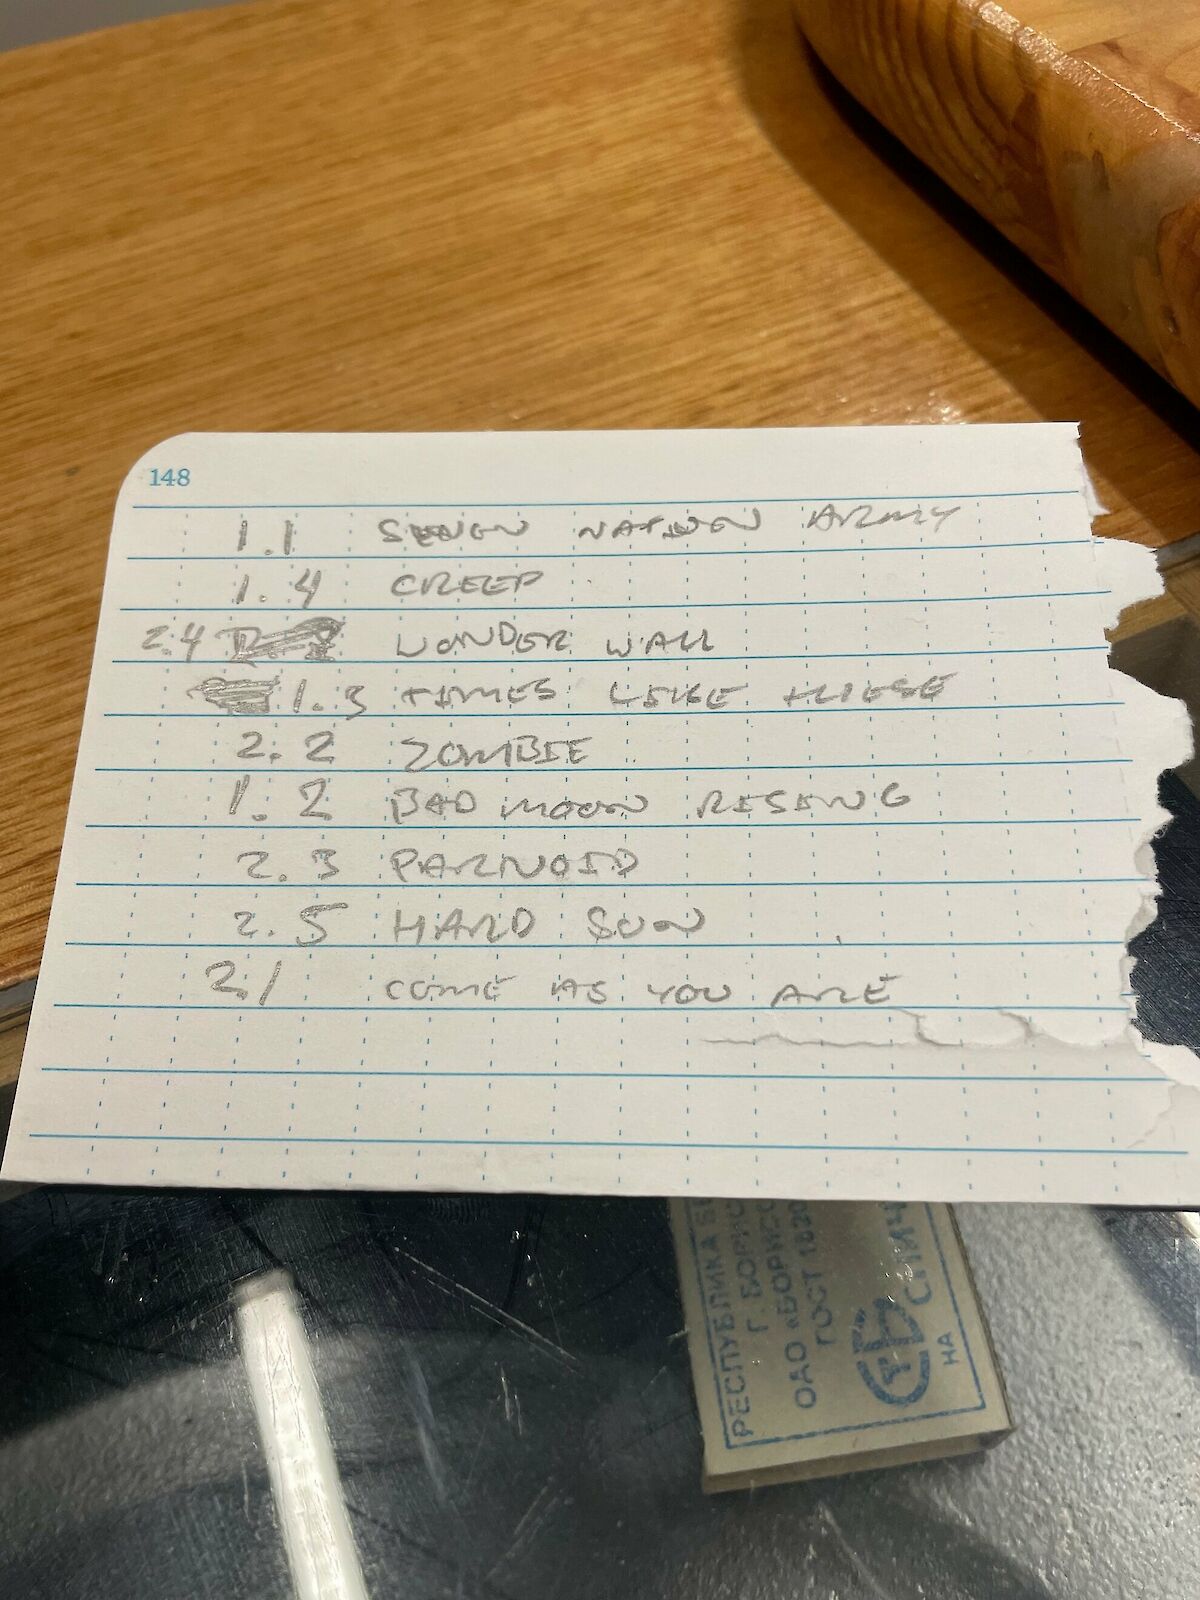 148
1.1 SEVEN NATION ARMY
1.4 CREEP
2.4 WONDER WALL
1.3 TIMES LIKE THESE
2.2 ZOMBIE
1.2 BAD MOON RISING
2.3 PARNOID
2.5 HARD SUN
2.1 COME AS YOU ARE
РЕСПУБЛИКА БЕ
Г. БОРИС
ОАО «БОРИСО
ГОСТ 1820
СПИЧ
НА